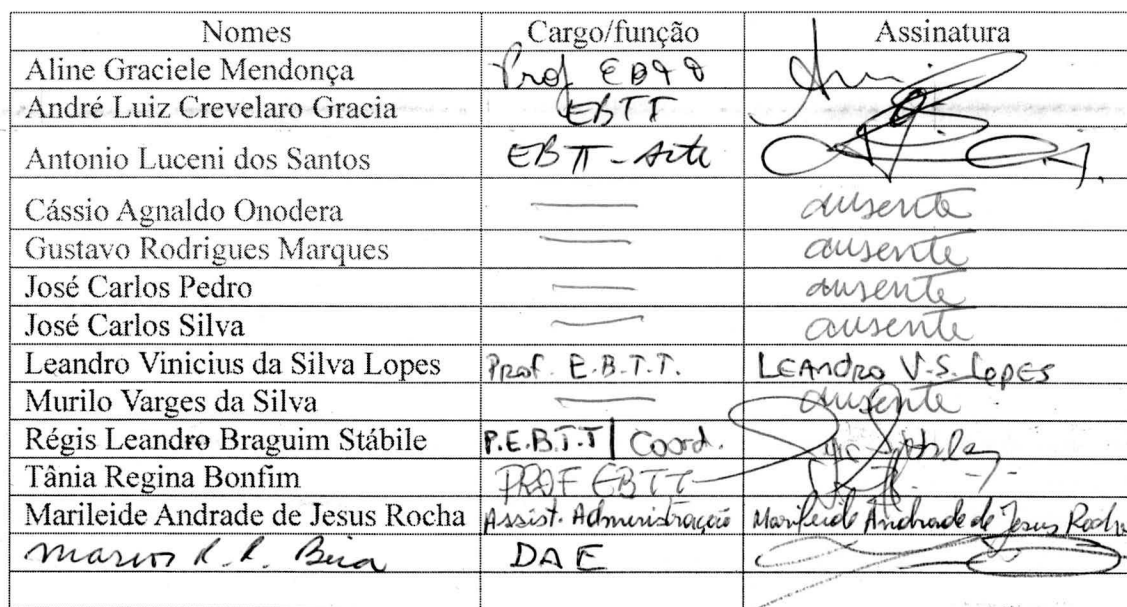 Nomes Cargo/função Assinatura
Aline Graciele Mendonça Prof
André Luiz Crevelaro Gracia EBTT
Antonio Luceni dos Santos EBTT - Arte
Cássio Agnaldo Onodera ausente
Gustavo Rodrigues Marques ausente
José Carlos Pedro ausente
José Carlos Silva ausente
Leandro Vinicius da Silva Lopes Prof. E.B.T.T. LEANDRO V.S. LOPES
Murilo Varges da Silva ausente
Régis Leandro Braguim Stábile P.E.B.T.T | Coord.
Tânia Regina Bonfim PROF EBTT
Marileide Andrade de Jesus Rocha Assist. Administração Marileide Andrade de Jesus Rocha
Marcos R. R. DAE